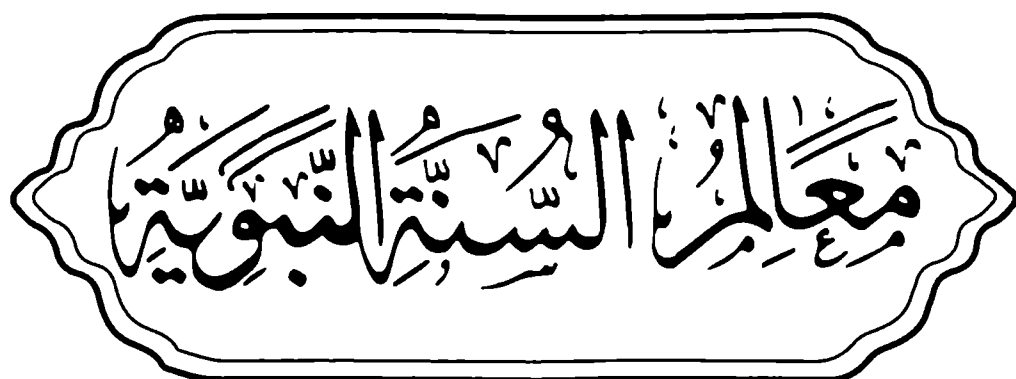 مَعَالِمُ السُّنَّةِ النَّبَوِيَّةِ